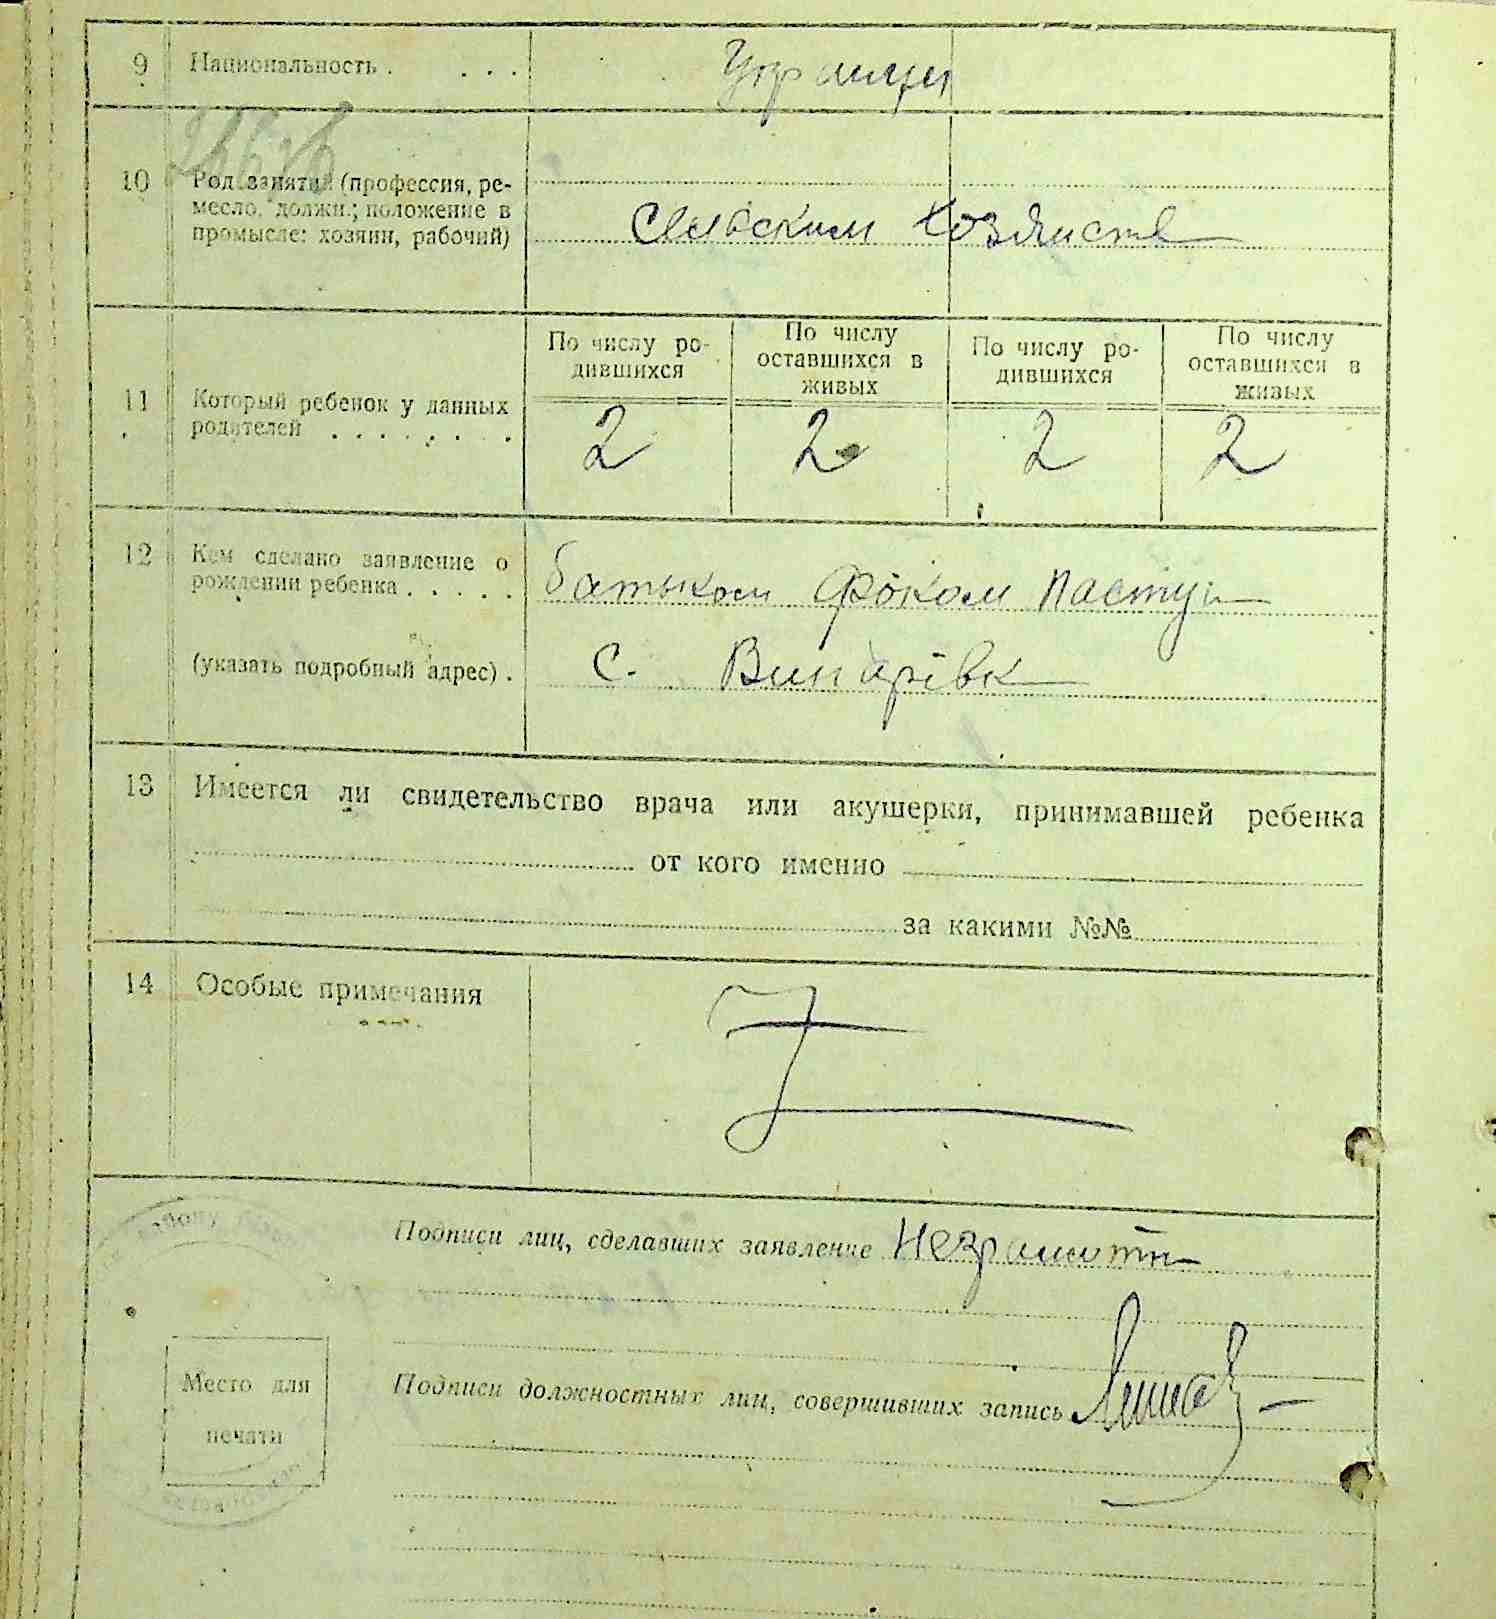 9 Национальность . . . .
Украинцы
10 Род занятий (профессия, ре-
месло, должн.; положение в
промысле: хозяин, рабочий)
Сельским хозяйств
По числу ро-
дившихся
По числу
оставшихся в
живых
По числу ро-
дившихся
По числу
оставшихся в
живых
11 Который ребенок у данных
родителей . . . . . . . .
2 2 2 2
12 Кем сделано заявление о
рождении ребенка . . . . .
батьком Фоком Пастух
(указать подробный адрес) .
с. Винарівк
13 Имеется ли свидетельство врача или акушерки, принимавшей ребенка
от кого именно
за какими №№
14 Особые примечания
Подписи лиц, сделавших заявление Неграмотн
Место для
печати
Подписи должностных лиц, совершивших запись